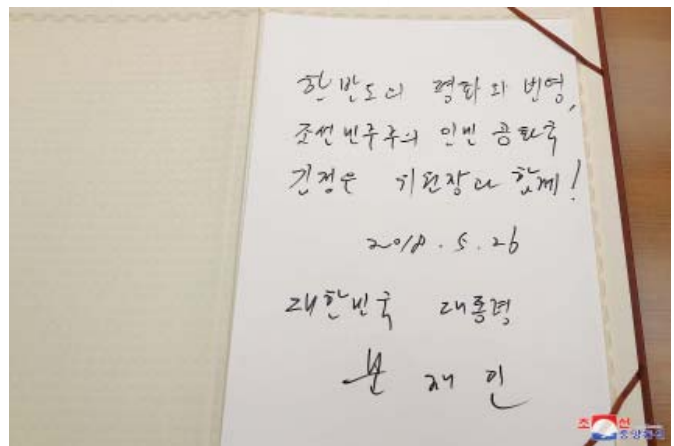 한반도의 평화와 번영,
조선민주주의 인민 공화국
김정은 위원장과 함께!
2018. 5. 26
대한민국 대통령
문 재 인
조선
중앙통신